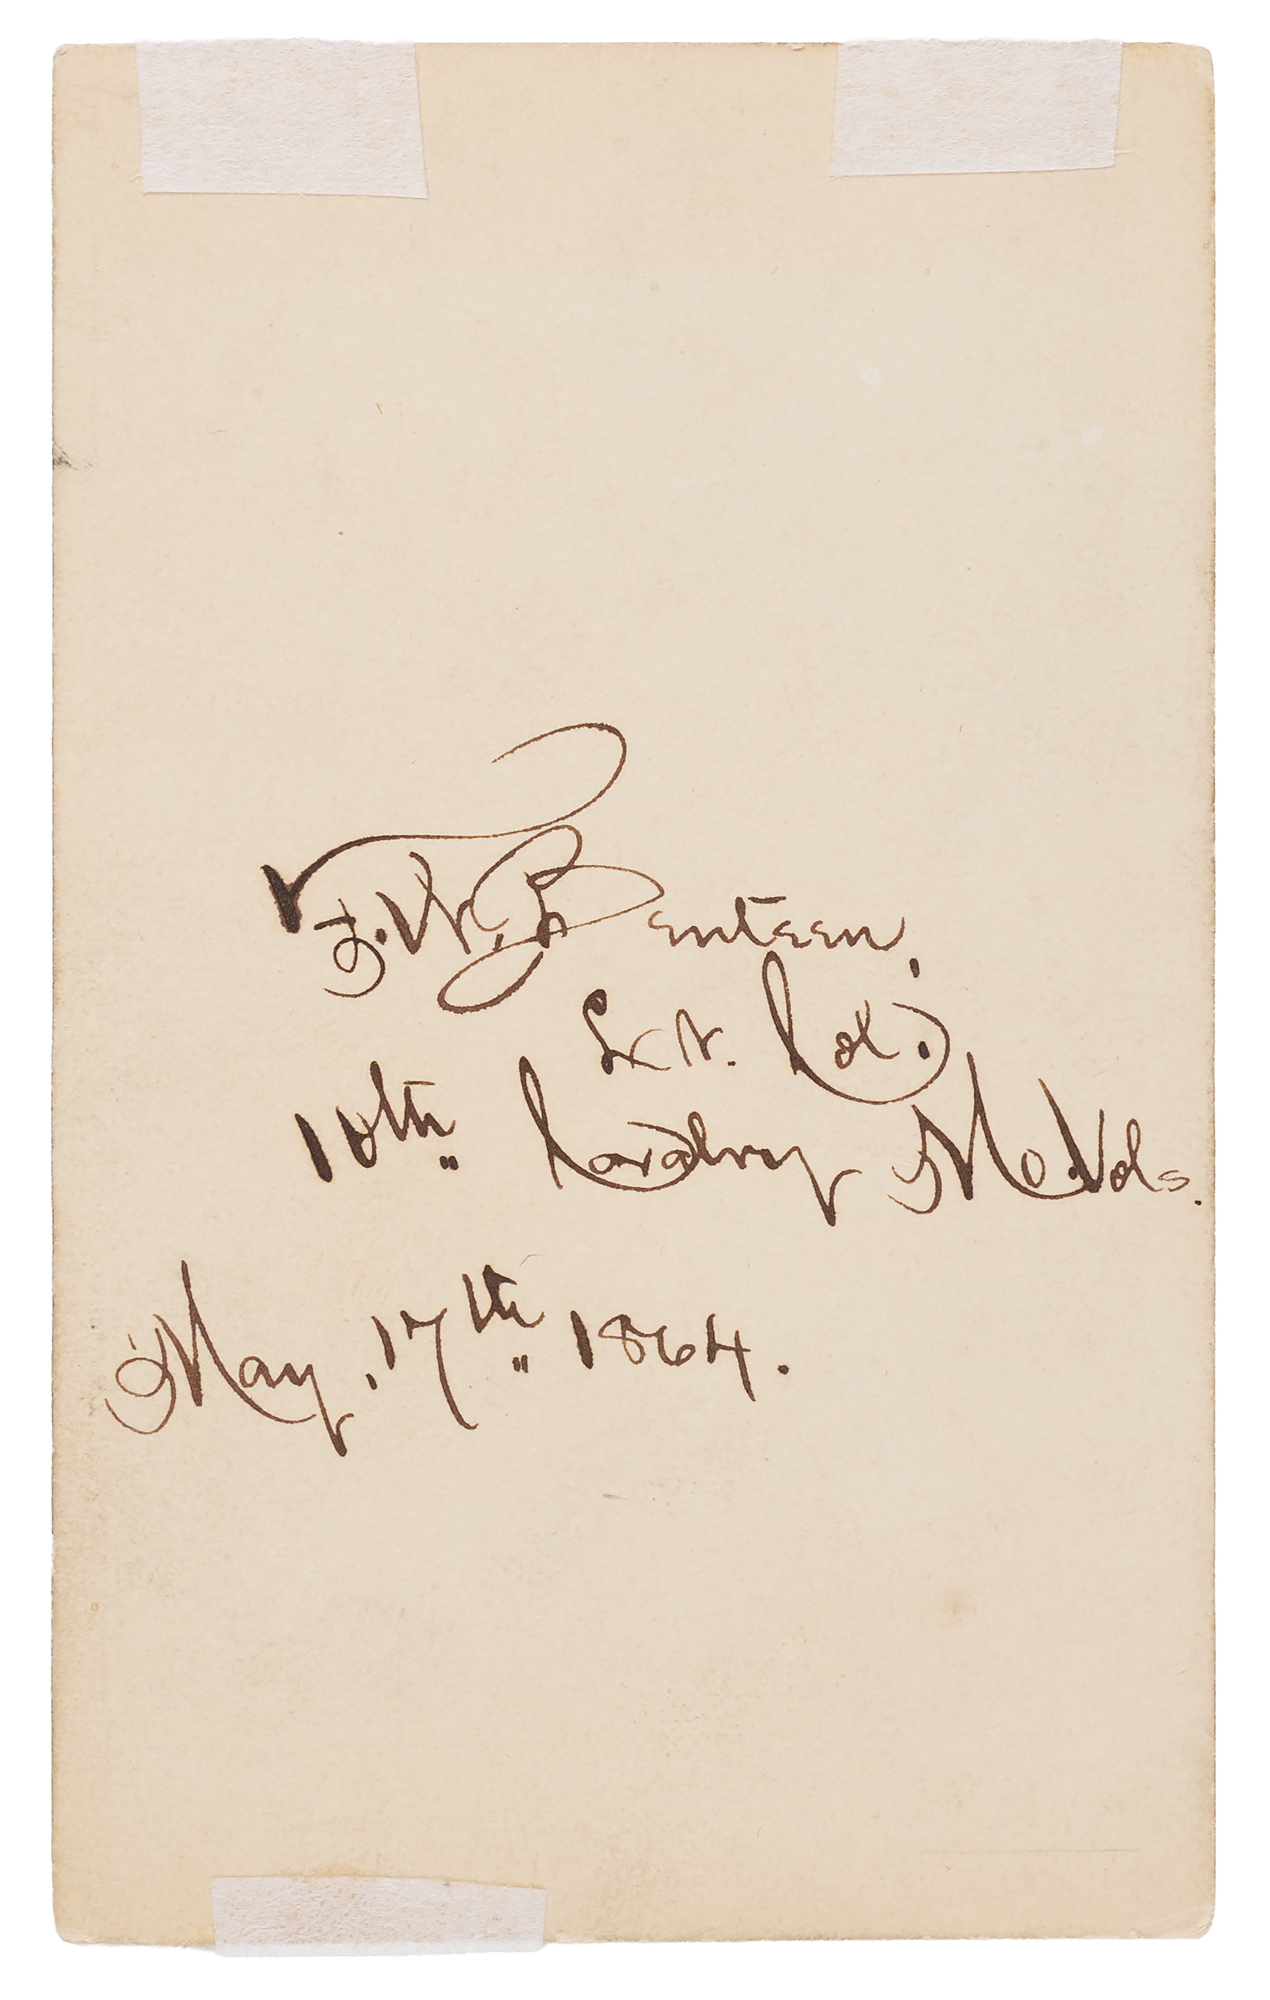 F. W. Benteen,
Lt. Col.
10th Cavalry Mo. Vols.
May, 17th 1864.